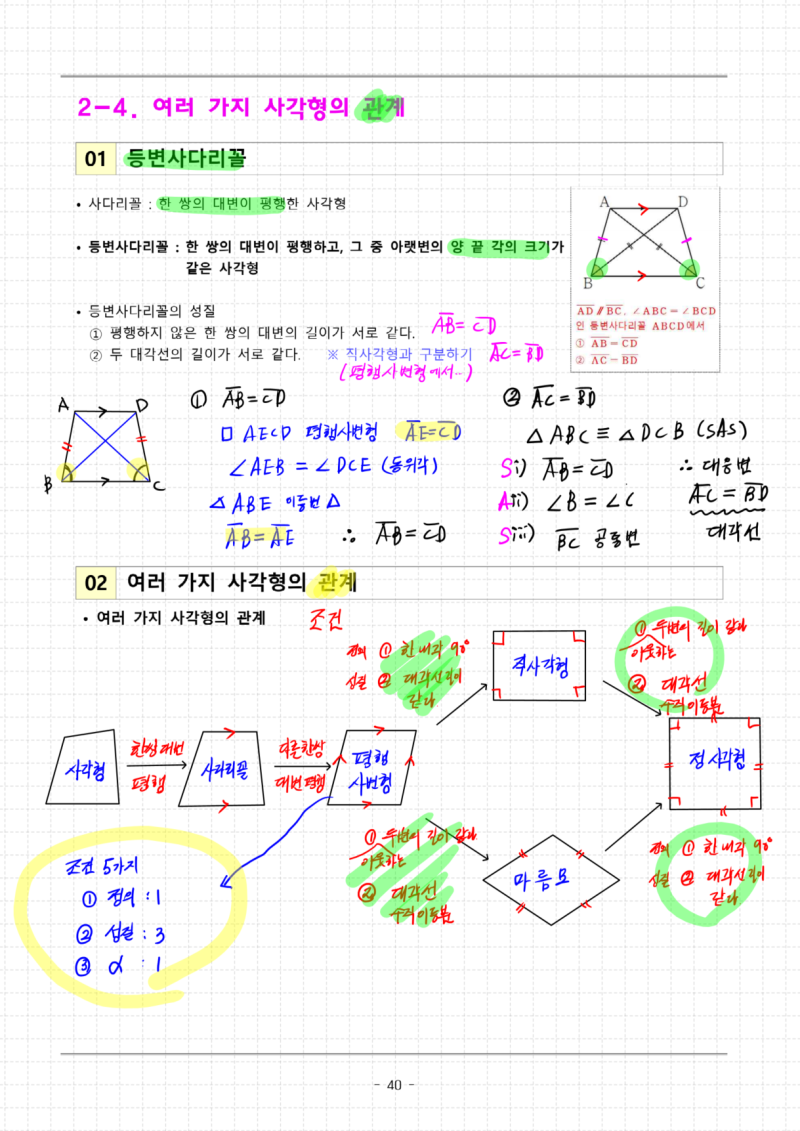 2-4. 여러 가지 사각형의 관계
01 등변사다리꼴
• 사다리꼴 : 한 쌍의 대변이 평행한 사각형
• 등변사다리꼴 : 한 쌍의 대변이 평행하고, 그 중 아랫변의 양 끝 각의 크기가
같은 사각형
• 등변사다리꼴의 성질
① 평행하지 않은 한 쌍의 대변의 길이가 서로 같다. A̅B̅= C̅D̅
② 두 대각선의 길이가 서로 같다. ※ 직사각형과 구분하기 A̅C̅= B̅D̅
(평행사변형에서..)
A D
B C
A̅D̅ ∥ B̅C̅, ∠ABC = ∠BCD
인 등변사다리꼴 ABCD에서
① A̅B̅ = C̅D̅
② A̅C̅ = B̅D̅
A D
B C
① A̅B̅=C̅D̅
□ AECD 평행사변형 A̅E̅=C̅D̅
∠AEB = ∠DCE (동위각)
△ABE 이등변△
A̅B̅=A̅E̅ ∴ A̅B̅=C̅D̅
② A̅C̅= B̅D̅
△ABC ≡ △DCB (SAS)
S i) A̅B̅= C̅D̅ ∴ 대응변
A ii) ∠B = ∠C A̅C̅ = B̅D̅
S iii) B̅C̅ 공통변 대각선
02 여러 가지 사각형의 관계
• 여러 가지 사각형의 관계 조건
정의 ① 한 내각 90°
성질 ② 대각선 길이
같다
직사각형
① 두변이 길이 같다
이웃하는
② 대각선
수직이등분
사각형
한쌍 대변
평행
사다리꼴
다른 한쌍
대변 평행
평행
사변형
정사각형
① 두변이 길이 같다
이웃하는
② 대각선
수직이등분
마름모
정의 ① 한 내각 90°
성질 ② 대각선 길이
같다
조건 5가지
① 정의 : 1
② 성질 : 3
③ α : 1
- 40 -